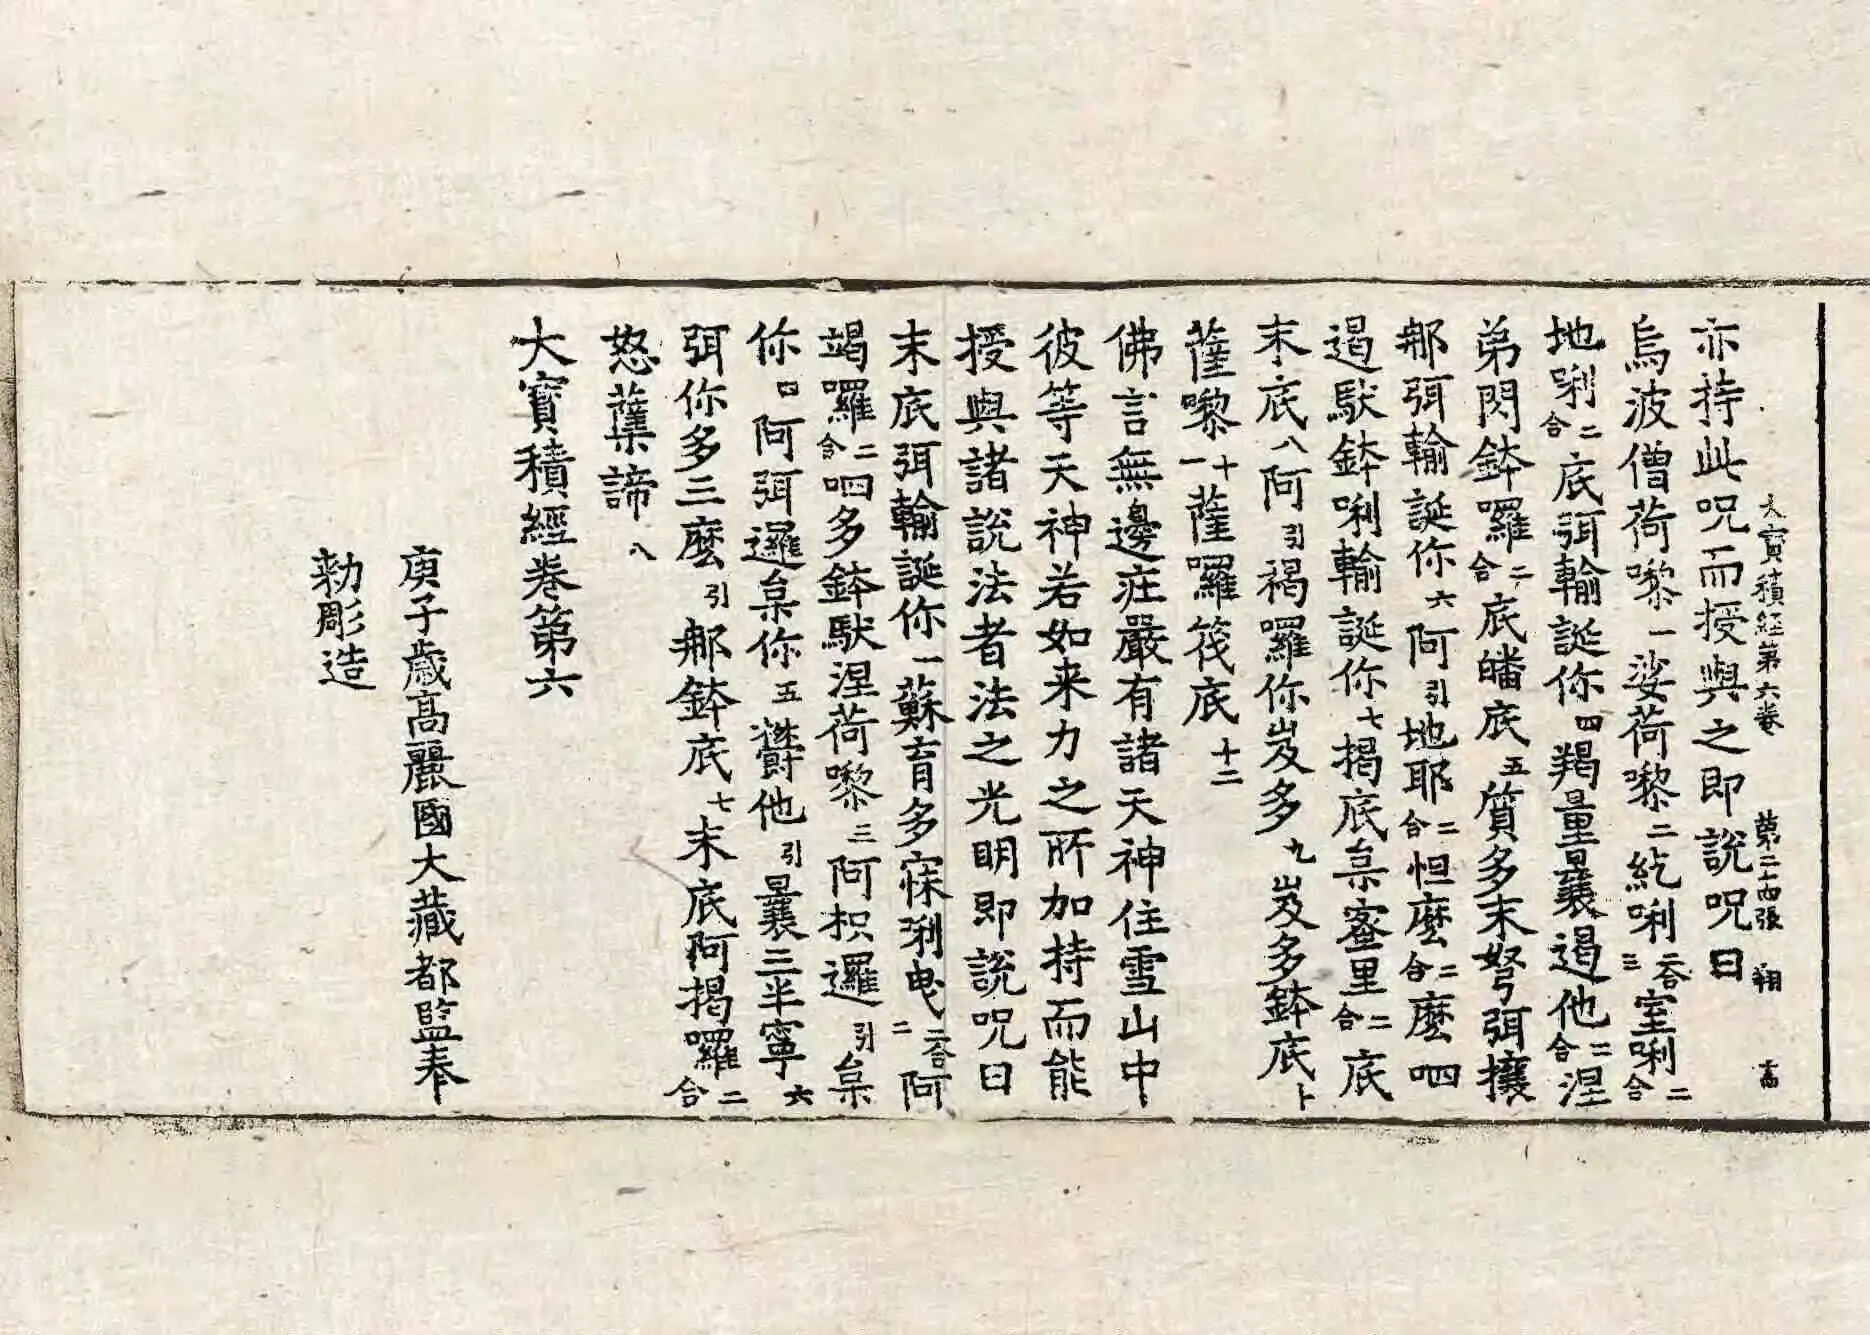 大寶積經第六卷 第二十四張 翔 高
亦持此呪而授與之即說呪曰
烏波僧荷嚟一娑荷嚟二紇唎二合三室唎二合
地唎二合底弭輸誕你四羯量曩遏他二合涅
弟閃鉢囉二合底皤底五質多末弩弭攘
那弭輸誕你六阿引地耶二合怛麼二合麼呬
遏馱鉢唎輸誕你七揭底枲蜜里二合底
末底八阿引褐囉你岌多九岌多鉢底十
薩嚟十一薩囉筏底十二
佛言無邊莊嚴有諸天神住雪山中
彼等天神若如来力之所加持而能
授與諸說法者法之光明即說呪曰
末底弭輸誕你一蘇育多寐琍曳二合二阿
竭囉二合呬多鉢馱涅荷嚟三阿枳邏引枲
你四阿弭邏枲你五欝他引曩三半寧六
弭你多三麼引那鉢底七末底阿揭囉二合
怒蘖諦八
大寶積經卷第六
庚子歳高麗國大藏都監奉
勑彫造